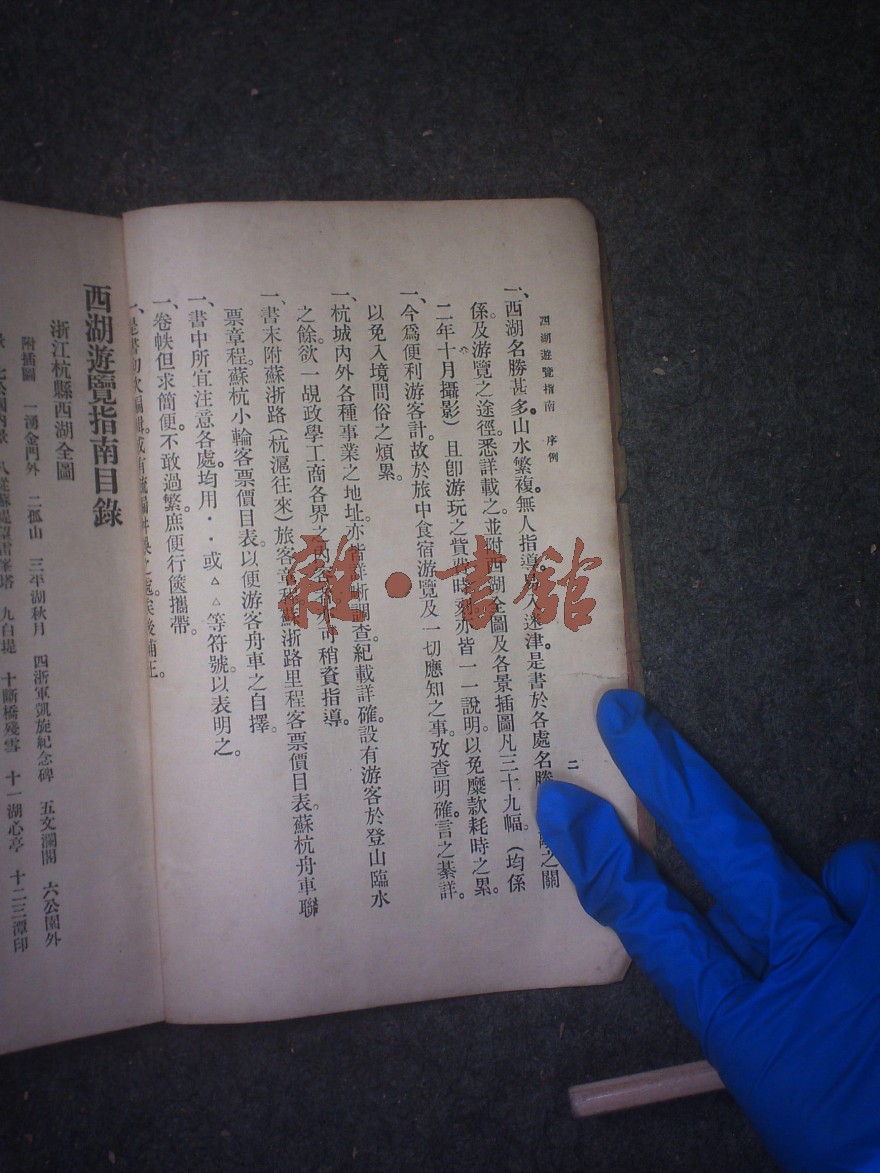 西湖遊覽指南 序例 二
一、西湖名勝甚多。山水繁複。無人指導。迷津。是書於各處名勝之關
係及游覽之途徑。悉詳載之。並附西湖全圖及各景插圖凡三十九幅。(均係
二年十月攝影)且卽游玩之貲費時刻。亦皆一一說明。以免糜款耗時之累。
一、今爲便利游客計。故於旅中食宿游覽及一切應知之事。攷查明確。言之綦詳。
以免入境問俗之煩累。
一、杭城內外各種事業之地址。亦皆詳晰調查。紀載詳確。設有游客於登山臨水
之餘。欲一覘政學工商各界之內可稍資指導。
一、書末附蘇浙路(杭滬往來)旅客章程。蘇浙路里程客票價目表。蘇杭舟車聯
票章程。蘇杭小輪客票價目表。以便游客舟車之自擇。
一、書中所宜注意各處。均用..或△△等符號以表明之。
一、卷帙但求簡便。不敢過繁。庶便行篋攜帶。
一、是書初次編輯。或有疏漏舛誤之處。俟後補正。
西湖遊覽指南目錄
浙江杭縣西湖全圖
附插圖 一湧金門外 二孤山 三平湖秋月 四浙軍凱旋紀念碑 五文瀾閣 六公園外
九白堤 十斷橋殘雪 十一湖心亭 十二三潭印
雜·書館